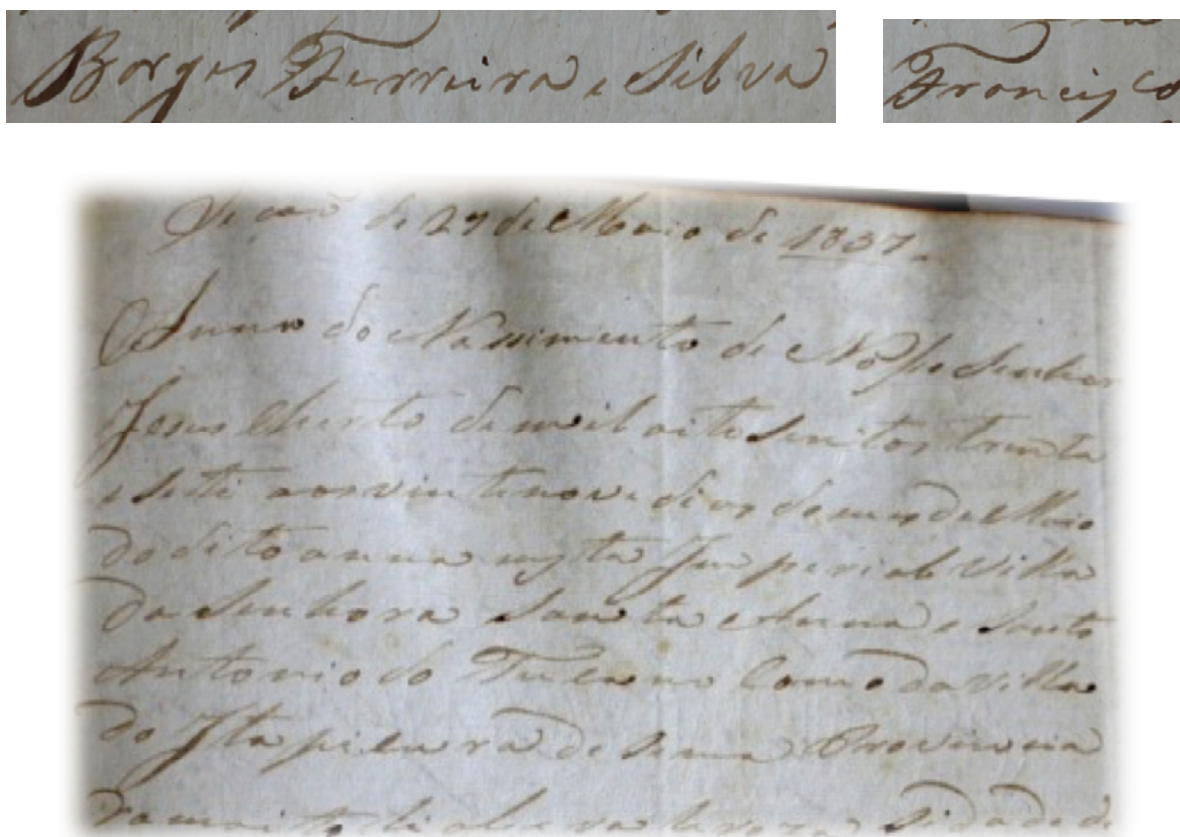 Borges Ferreira e Silva
Francisco
de 29 de Maio de 1837.
Anno do Nassimento de Nosso Senhor
Jesus Christo de mil oito sentos trinta
e seti aos vinte nove dias do mes de Maio
do dito anno nesta Imperial Villa
da Senhora Santa Anna e Santo
Antonio do Tucano Comca da Villa
do Itapicurú de sima Provincia
da muito Sidade de